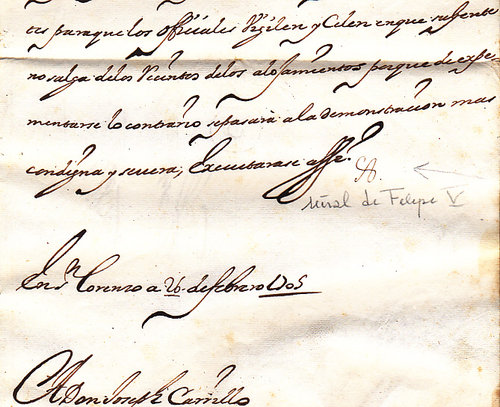 tes para que los offiçiales Vigilen y Celen en que su gente
no salga delos Reçintos delos alojamientos porque de expe-
mentarse lo contrario sepasará a la demonstraçion mas
condigna y severa, Executarase assi.
señal de Felipe V
En Sn Lorenzo a 26 de febrero 1705
A Don Joseph Carrillo